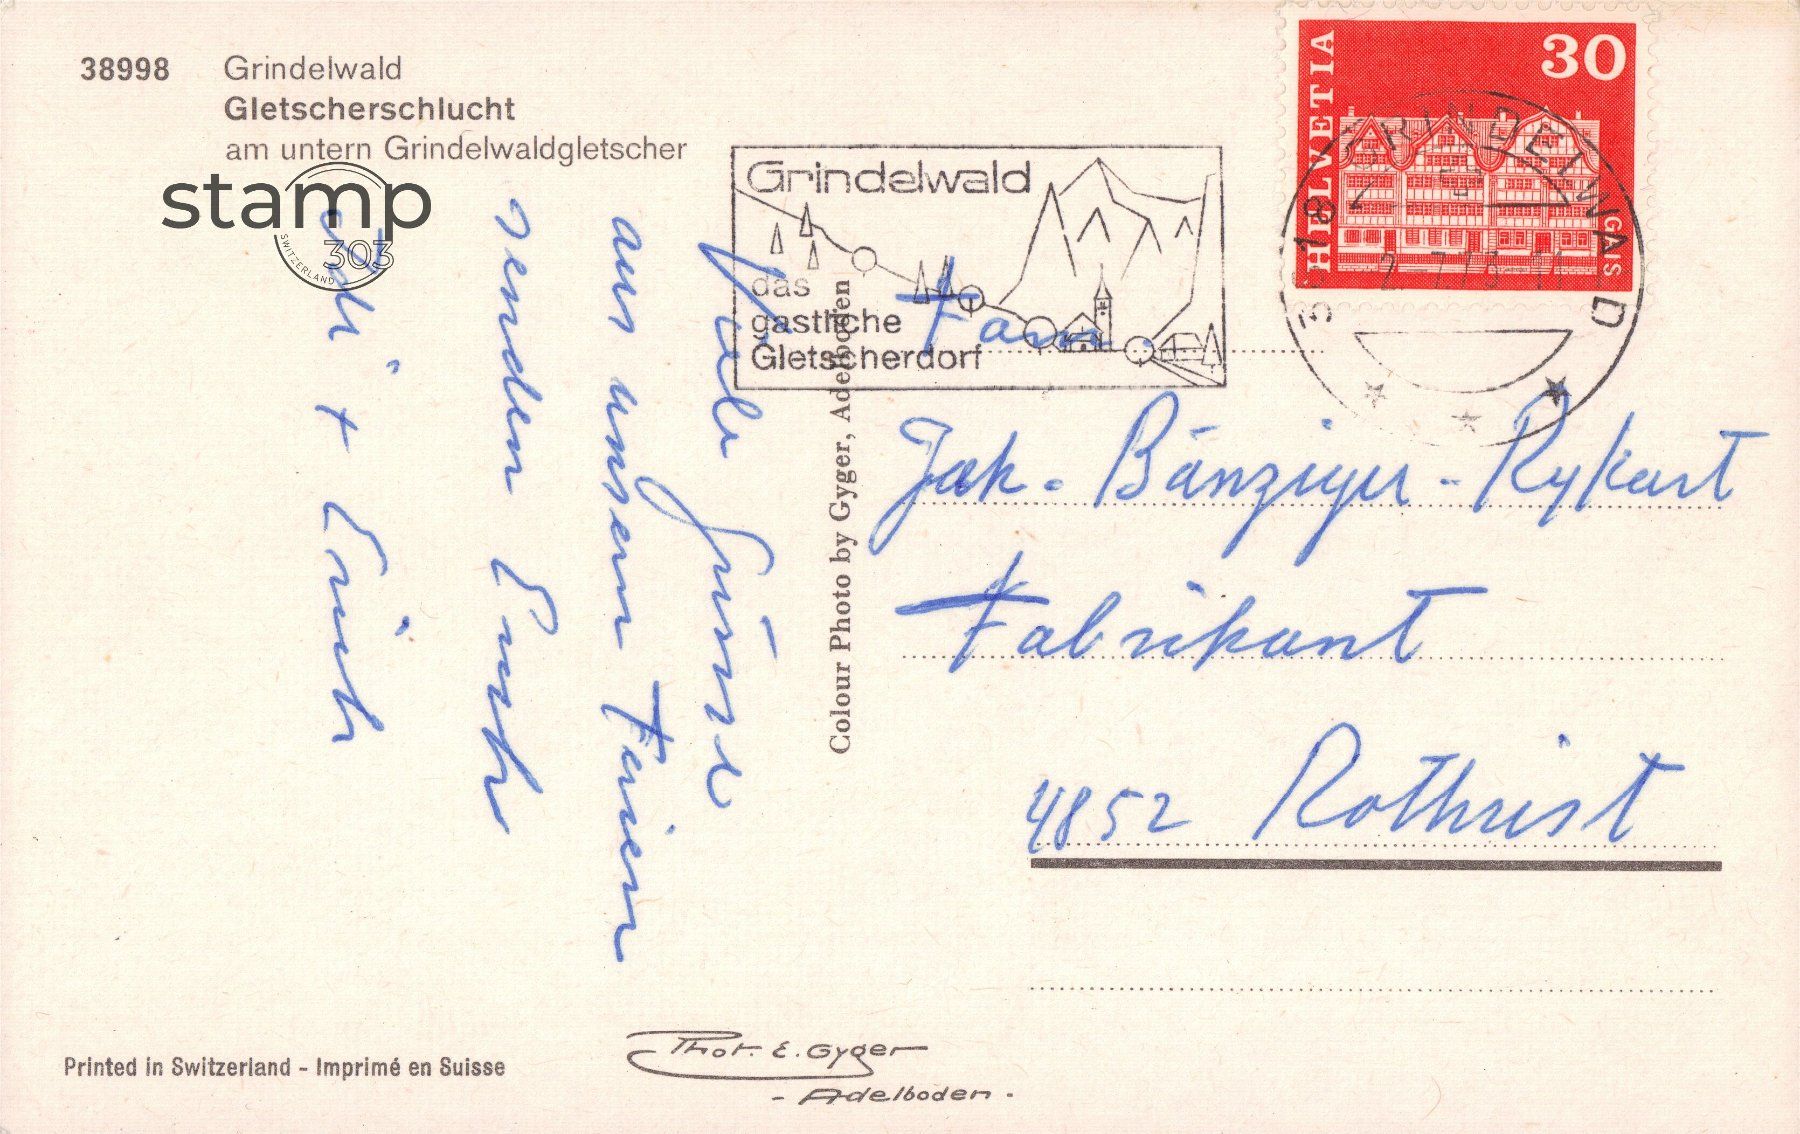 38998 Grindelwald
Gletscherschlucht
am untern Grindelwaldgletscher
stamp
303
SWITZERLAND
Viele Grüsse
aus unsern Ferien
senden Euch
+ Erich
Colour Photo by Gyger, Adelboden
Grindelwald
das
gastliche
Gletscherdorf
HELVETIA
30
GAIS
3818 GRINDELWALD
Fam.
Jak. Bänziger-Rykart
Fabrikant
4852 Rothrist
Printed in Switzerland - Imprimé en Suisse
Phot. E. Gyger
- Adelboden -